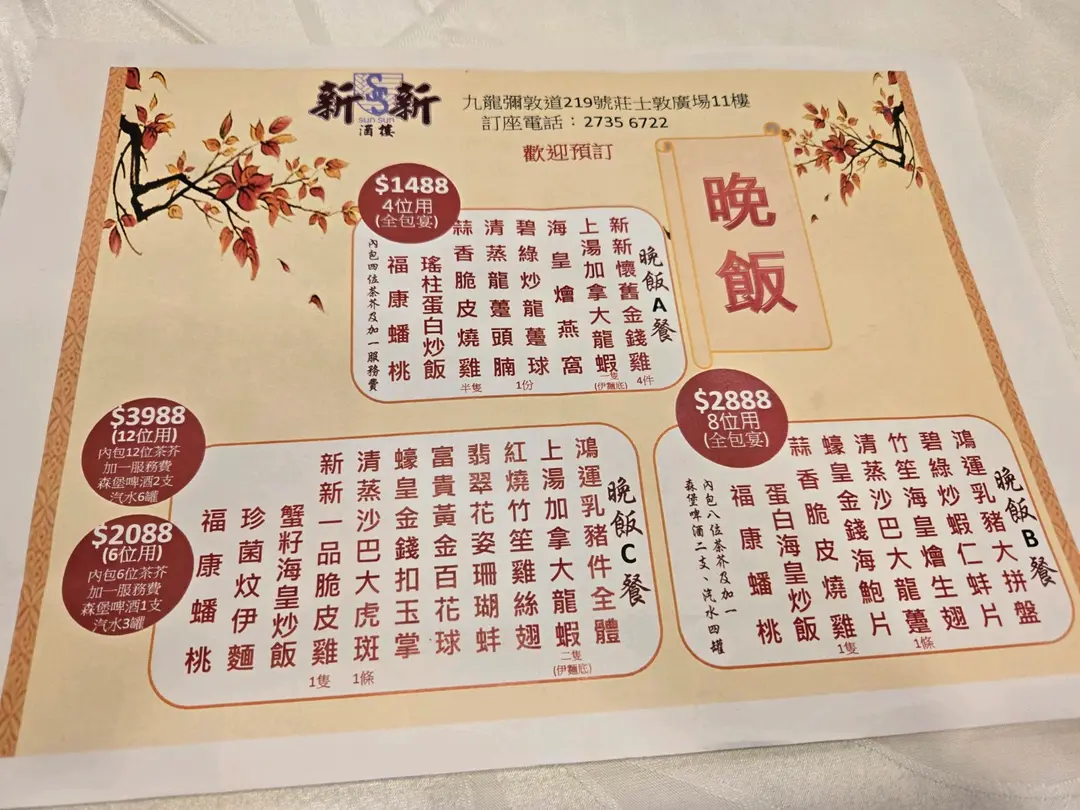 新新
sun sun
酒樓
九龍彌敦道219號莊士敦廣場11樓
訂座電話：2735 6722
歡迎預訂
晚飯
$1488
4位用
(全包宴)
晚飯A餐
新新懷舊金錢雞
4件
上湯加拿大龍蝦
一隻
(伊麵底)
海皇燴燕窩
碧綠炒龍躉球
清蒸龍躉頭腩
1份
蒜香脆皮燒雞
半隻
瑤柱蛋白炒飯
福康蟠桃
內包四位茶芥及加一服務費
$2888
8位用
(全包宴)
晚飯B餐
鴻運乳豬大拼盤
碧綠炒蝦仁蚌片
竹笙海皇燴生翅
清蒸沙巴大龍躉
1條
蠔皇金錢海鮑片
蒜香脆皮燒雞
1隻
蛋白海皇炒飯
福康蟠桃
內包八位茶芥及加一
森堡啤酒二支、汽水四罐
$3988
(12位用)
內包12位茶芥
加一服務費
森堡啤酒2支
汽水6罐
$2088
(6位用)
內包6位茶芥
加一服務費
森堡啤酒1支
汽水3罐
晚飯C餐
鴻運乳豬件全體
上湯加拿大龍蝦
二隻
(伊麵底)
紅燒竹笙雞絲翅
翡翠花姿珊瑚蚌
富貴黃金百花球
蠔皇金錢扣玉掌
清蒸沙巴大虎斑
1條
新新一品脆皮雞
1隻
蟹籽海皇炒飯
珍菌炆伊麵
福康蟠桃